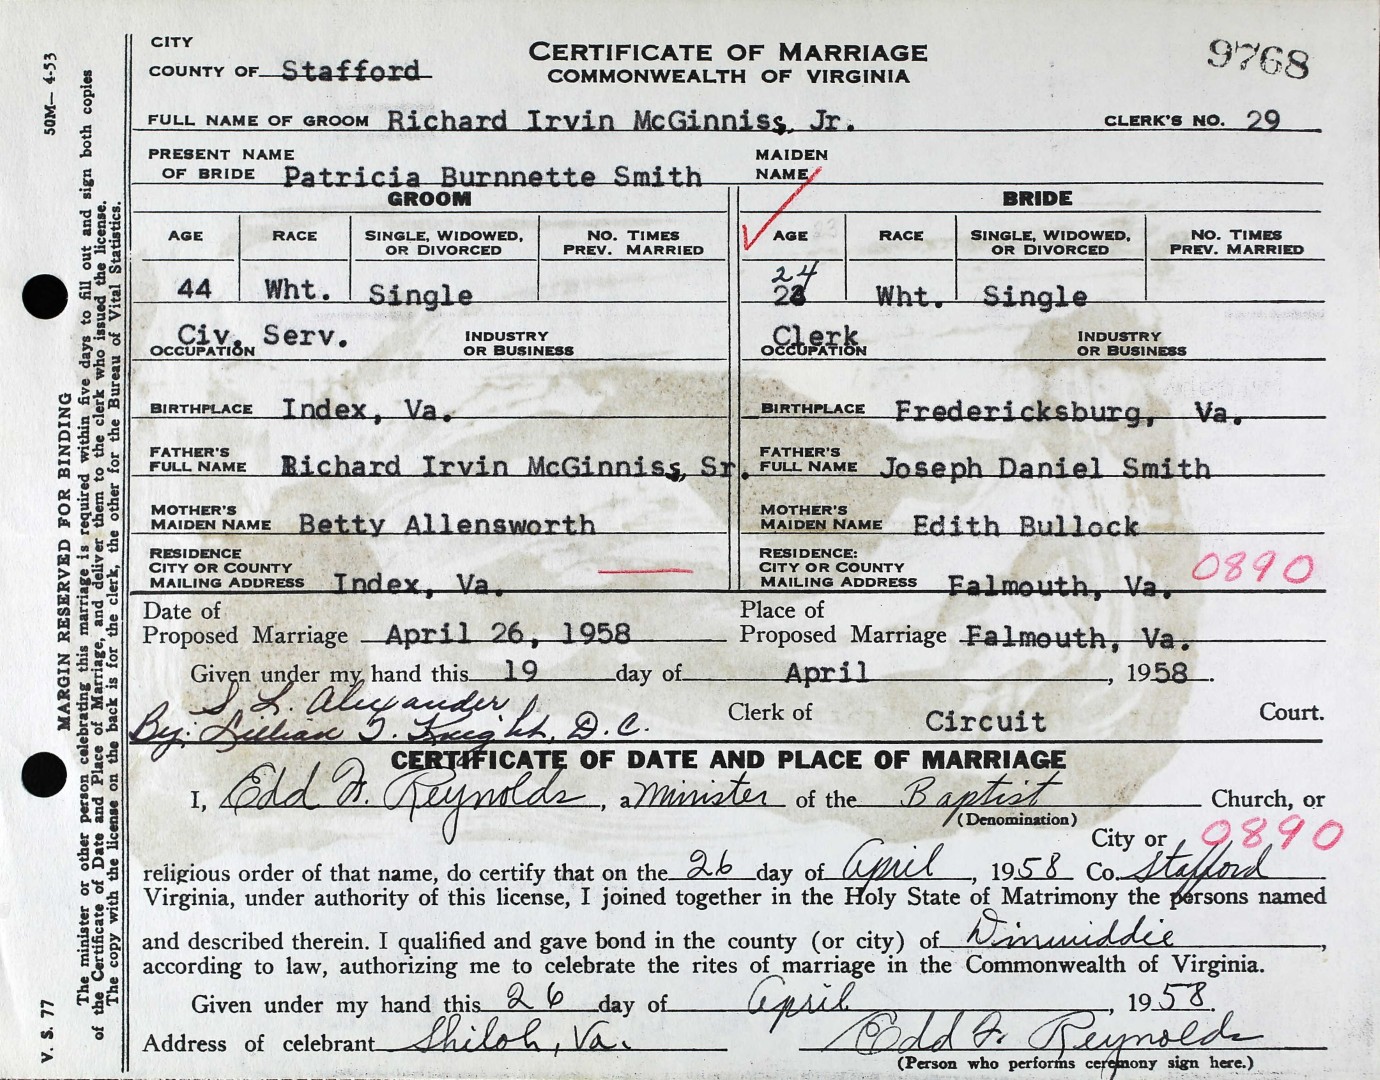 CITY
COUNTY OF Stafford
CERTIFICATE OF MARRIAGE
COMMONWEALTH OF VIRGINIA
9768
FULL NAME OF GROOM Richard Irvin McGinniss, Jr. CLERK'S NO. 29
PRESENT NAME OF BRIDE Patricia Burnnette Smith MAIDEN NAME
GROOM BRIDE
AGE RACE SINGLE, WIDOWED, OR DIVORCED NO. TIMES PREV. MARRIED AGE RACE SINGLE, WIDOWED, OR DIVORCED NO. TIMES PREV. MARRIED
24
44 Wht. Single Wht. Single
Civ. Serv. Clerk
OCCUPATION INDUSTRY OR BUSINESS OCCUPATION INDUSTRY OR BUSINESS
BIRTHPLACE Index, Va. BIRTHPLACE Fredericksburg, Va.
FATHER'S FULL NAME Richard Irvin McGinniss, Sr. FATHER'S FULL NAME Joseph Daniel Smith
MOTHER'S MAIDEN NAME Betty Allensworth MOTHER'S MAIDEN NAME Edith Bullock
RESIDENCE CITY OR COUNTY MAILING ADDRESS Index, Va. RESIDENCE: CITY OR COUNTY MAILING ADDRESS Falmouth, Va. 0890
Date of Proposed Marriage April 26, 1958 Place of Proposed Marriage Falmouth, Va.
Given under my hand this 19 day of April, 1958.
S. L. Alexander
By: Lillian T. Knight, D.C. Clerk of Circuit Court.
CERTIFICATE OF DATE AND PLACE OF MARRIAGE
I, Edd F. Reynolds, a Minister of the Baptist Church, or
(Denomination)
City or 0890
religious order of that name, do certify that on the 26 day of April, 1958 Co. Stafford
Virginia, under authority of this license, I joined together in the Holy State of Matrimony the persons named
and described therein. I qualified and gave bond in the county (or city) of Dinwiddie,
according to law, authorizing me to celebrate the rites of marriage in the Commonwealth of Virginia.
Given under my hand this 26 day of April, 1958.
Address of celebrant Shiloh, Va. Edd F. Reynolds
(Person who performs ceremony sign here.)
V. S. 77 MARGIN RESERVED FOR BINDING 50M—4-53
The minister or other person celebrating this marriage is required within five days to fill out and sign both copies
of the Certificate of Date and Place of Marriage, and deliver them to the clerk who issued the license.
The copy with the license on the back is for the clerk, the other for the Bureau of Vital Statistics.